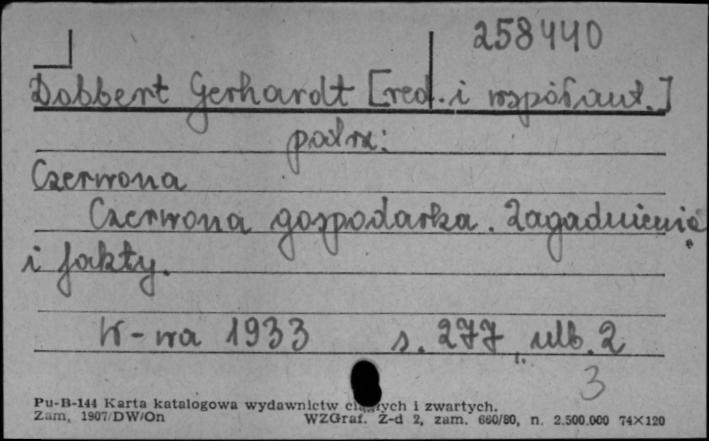 258440
Dobbert Gerhardt [red. i współaut.]
patrz:
Czerwona
Czerwona gospodarka. Zagadnienia
i fakty.
W-wa 1933 s. 277, nlb. 2
3
Pu-B-144 Karta katalogowa wydawnictw ciągłych i zwartych.
Zam, 1907/DW/On WZGraf. Z-d 2, zam. 660/80, n. 2.500.000 74×120